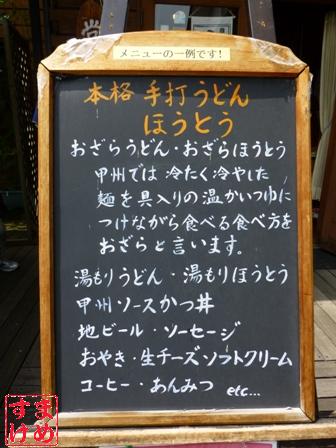 メニューの一例です!
本格 手打うどん
ほうとう
おざらうどん・おざらほうとう
甲州では 冷たく冷やした
麺を具入りの温かいつゆに
つけながら食べる食べ方を
おざらと言います。
湯もりうどん・湯もりほうとう
甲州ソースかつ丼
地ビール・ソーセージ
おやき・生チーズソフトクリーム
コーヒー・あんみつ etc...
すまけめ